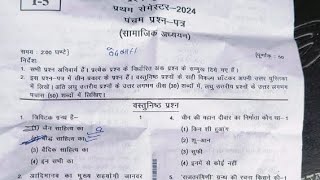 I-5
प्रथम सेमेस्टर-2024
पंचम प्रश्न-पत्र
(सामाजिक अध्ययन)
समय : 2:00 घण्टे]
[पूर्णांक : 50
निर्देश-
1. सभी प्रश्न अनिवार्य हैं। प्रत्येक प्रश्न के निर्धारित अंक प्रश्न के सम्मुख दिये गए हैं।
2. इस प्रश्न-पत्र में तीन प्रकार के प्रश्न हैं। वस्तुनिष्ठ प्रश्नों के सही विकल्प छाँटकर अपनी उत्तर पुस्तिका
में लिखें। अति लघु उत्तरीय प्रश्नों के उत्तर लगभग तीस (30) शब्दों में, लघु उत्तरीय प्रश्नों के उत्तर लगभग
पचास (50) शब्दों में लिखिए।
वस्तुनिष्ठ प्रश्न
1. त्रिपिटक ग्रन्थ है-
(1) जैन साहित्य का
(2) बौद्ध साहित्य का
(3) वैदिक साहित्य का
(4) इन सभी का
2. आदिमानव का मुख्य सहयोगी जानवर
4. चीन की महान दीवार का निर्माता कौन था-
(1) किन शी हुआंग
(2) शू-आन
(3) सूफी
(4) इनमें से कोई नहीं
5. 'राजतरंगिणी' ग्रन्थ की रचना किसने की-